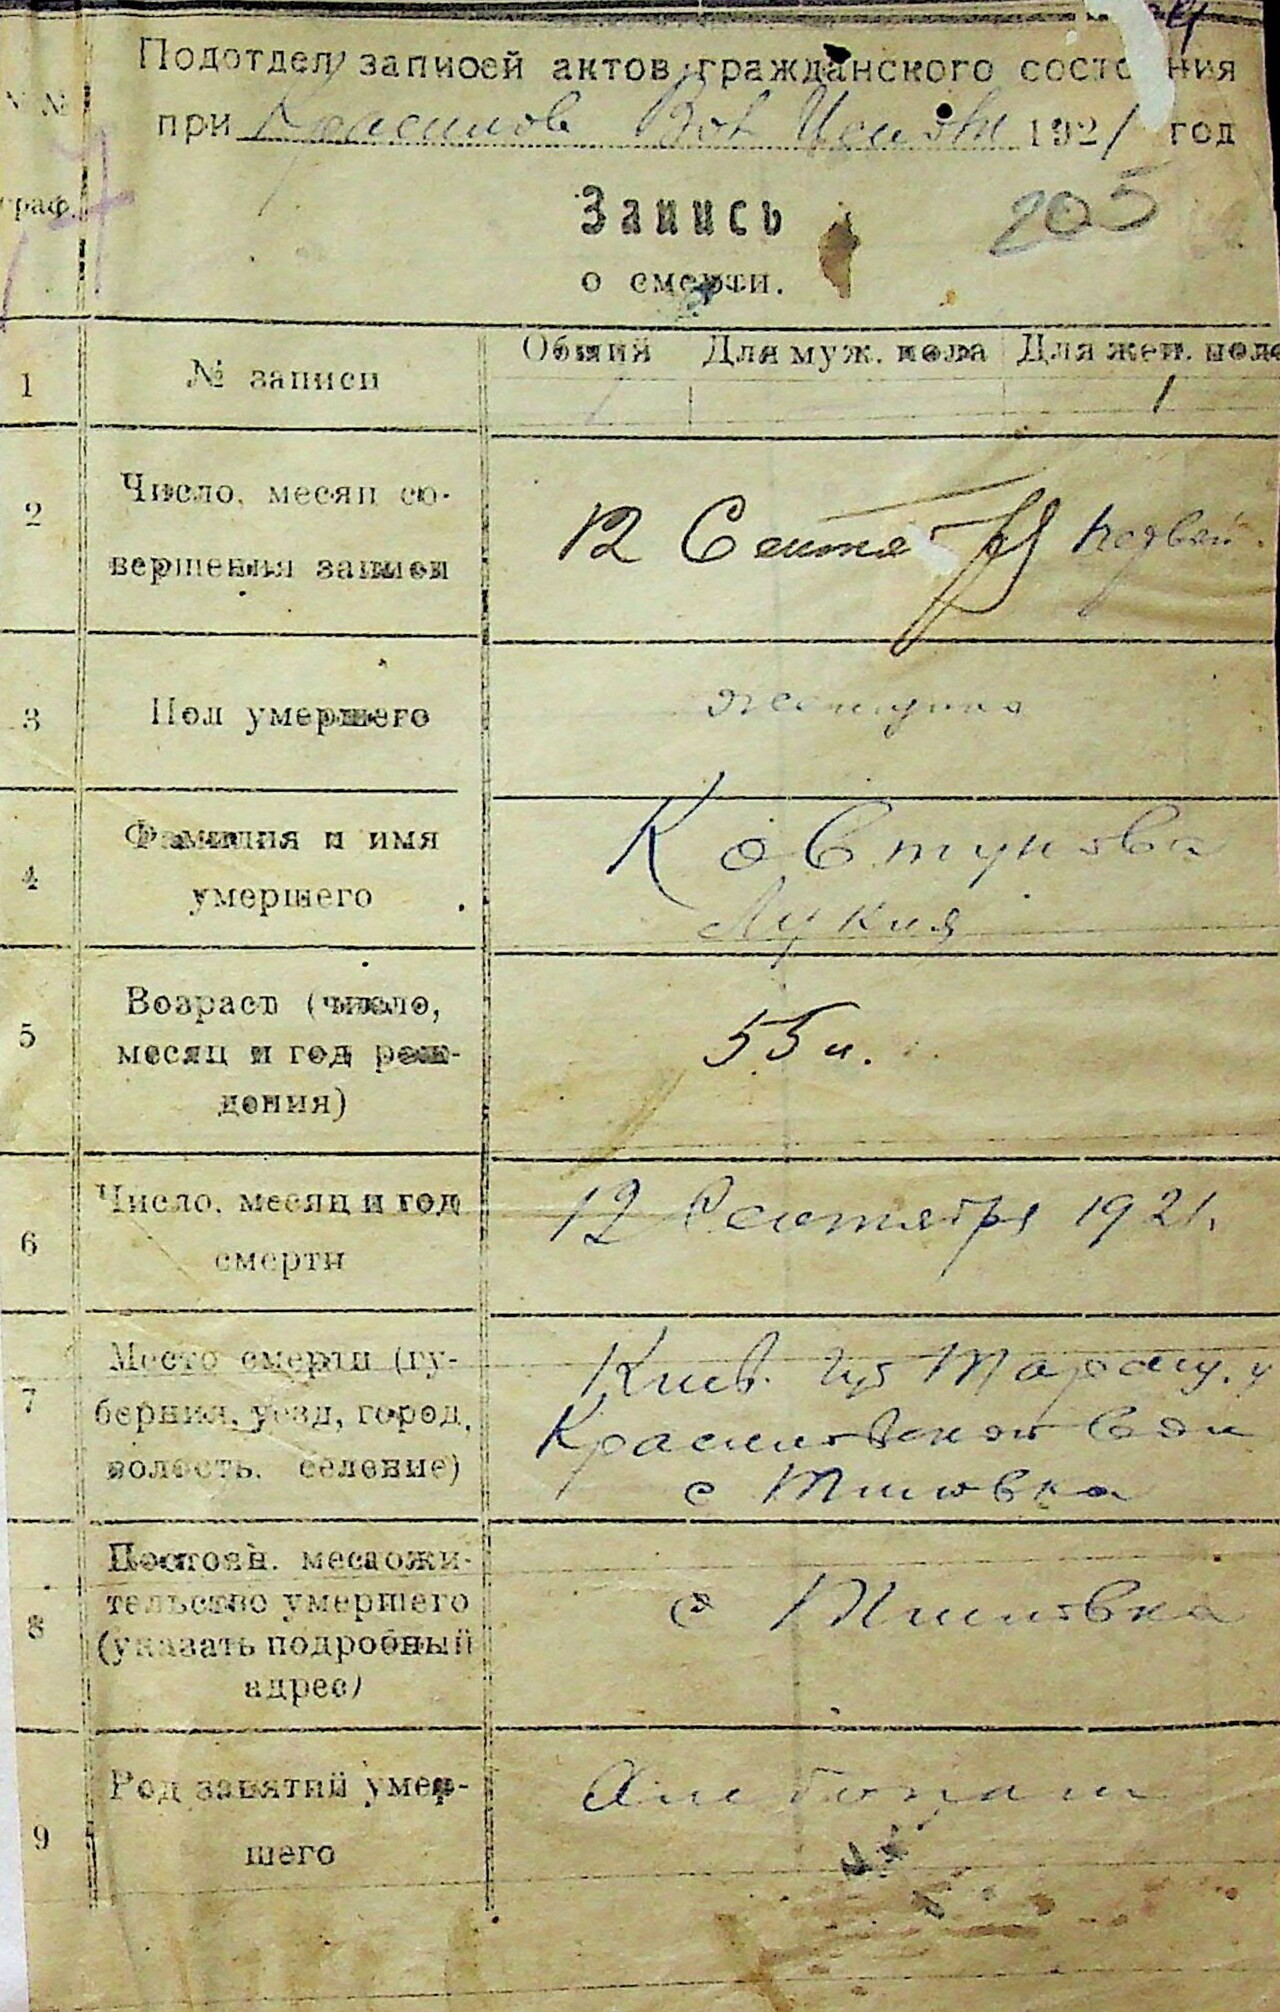 Подотдел записей актов гражданского состояния
при Красилов Вол Исп 1921 год
№№
граф.
Запись
205
о смерти.
Общий Для муж. пола Для жен. пола
1 № записи 1 1
2 Число, месяц со-
вершения записи
12 Сентября первый
3 Пол умершего женщина
4 Фамилия и имя
умершего
Ковтунова
Лукия
5 Возраст (число,
месяц и год рож-
дения)
55 л.
6 Число, месяц и год
смерти
12 Сентября 1921.
7 Место смерти (гу-
берния, уезд, город,
волость, селение)
Киев. Губ Таращ. у
Красиловской Вол
с Тиновка
8 Постоян. местожи-
тельство умершего
(указать подробный
адрес)
с Тиновка
9 Род занятий умер-
шего
Хлебопаш